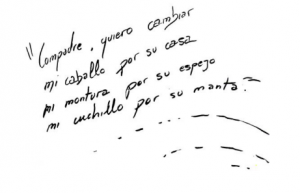 "Compadre, quiero cambiar
mi caballo por su casa
mi montura por su espejo
mi cuchillo por su manta."